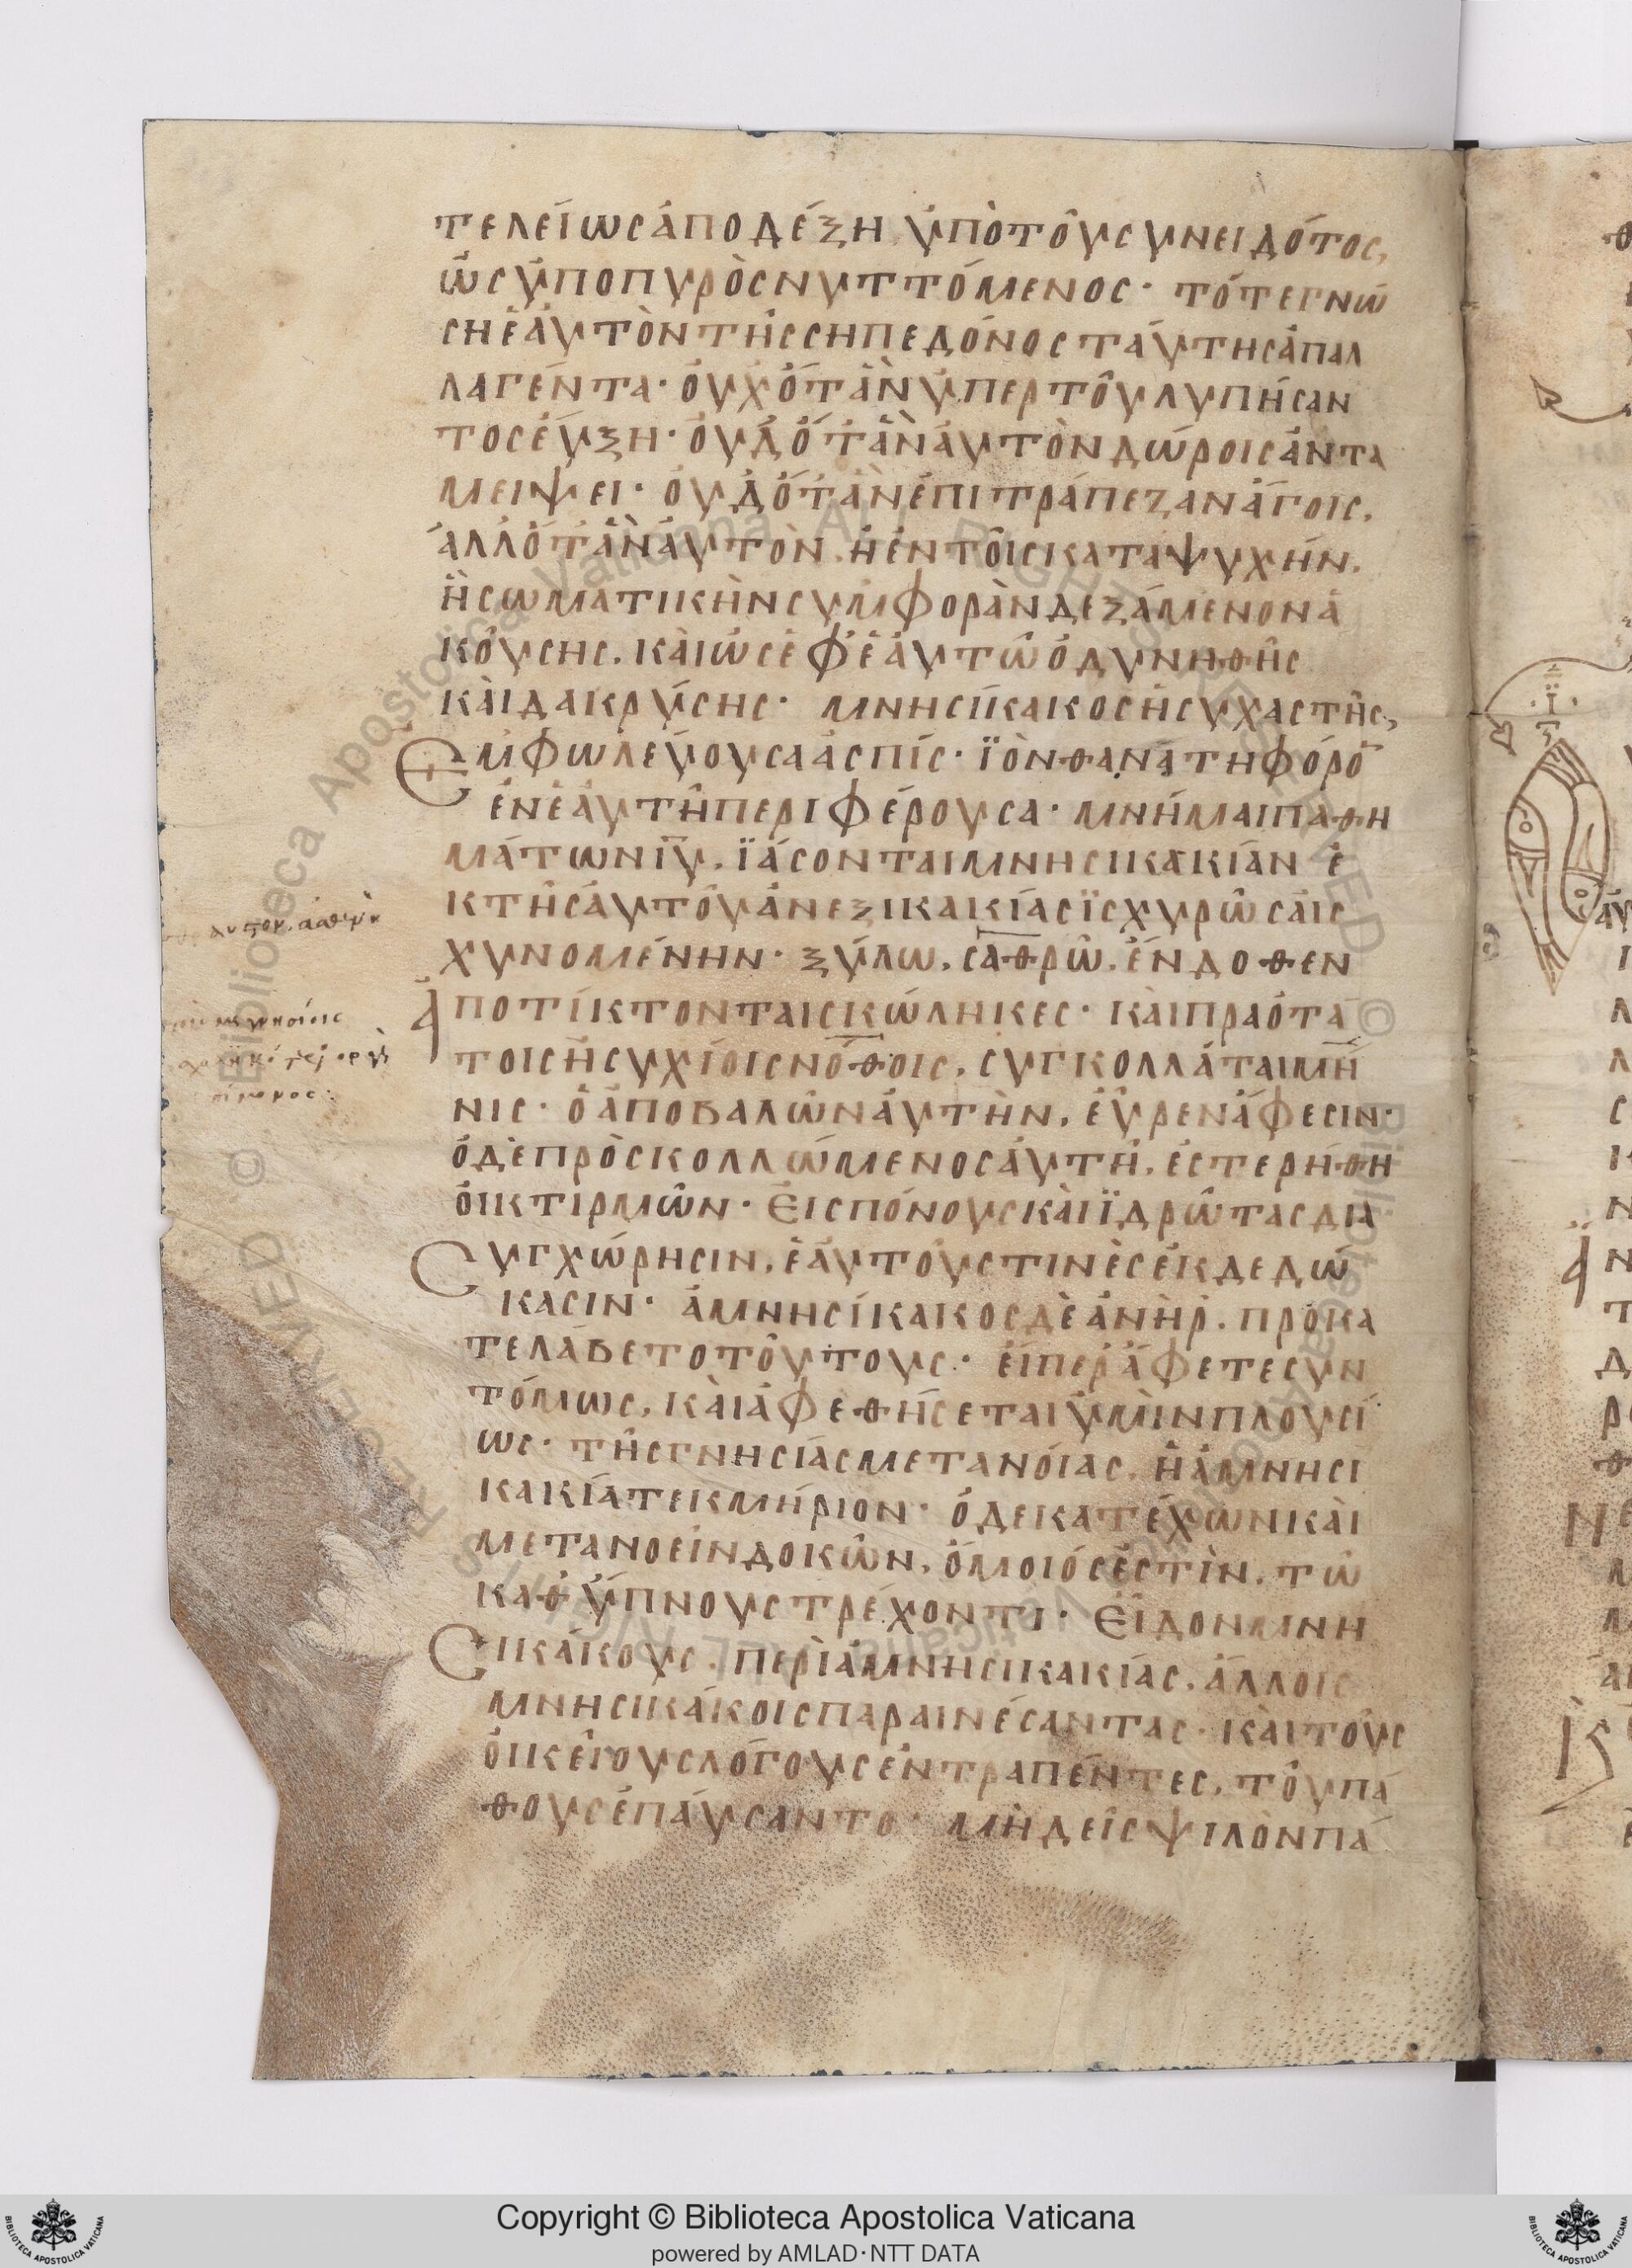 τελείως ἀποδέξη ὑπὸ τοῦ συνειδότος,
ὡς ὑπο πυρὸς νυττόμενος· τότε γνώ
ση ἑαυτὸν τῆς σηπεδόνος ταύτης ἀπαλ
λαγέντα· οὐχ ὅτ ἂν ὑπερ τοῦ λυπήσαν
τος εὔξη· οὐδ ὅτ ἂν αὐτὸν δώροις ἀντα
μειψει· οὐδ ὅτ ἂν ἐπι τράπεζαν ἄγοις,
ἀλλ ὅτ ἂν αὐτὸν, ἢ ἐν τοῖς κατα ψυχήν,
ἢ σωματικὴν συμφορὰν δεξάμενον ἀ
κούσης, καὶ ὡς ἐφ ἑαυτῶ ὀδυνηθῆς
καὶ δακρύσης· μνησίκακος ἡσυχαστῆς,
Εμφωλεύουσα ἀσπίς· ϊὸν θανατηφόρο̄
ἐν ἑαυτῆ περιφέρουσα· μνήμαι παθη
μάτων ῑῡ, ϊάσονται μνησικακίαν ἐ
κ τῆς αὐτοῦ ἀνεξικακίας ϊσχυρῶς αἰς
χυνομένην· ξύλω, σαθρῶ, ἔνδοθεν
ἀποτίκτονται σκώληκες· καὶ πραότα
τοις ἡσυχίοις νόθοις, συγκολλάται μῆ
νις· ὁ ἀποβαλὼν αὐτὴν, εὗρεν ἄφεσιν·
ὁ δὲ πρὸσκολλώμενος αὐτῆ, ἐστερήθη
οἰκτιρμῶν· Εἰς πόνους καὶ ϊδρῶτας δια
Συγχώρησιν, ἑαυτούς τινὲς ἐκδεδώ
κασιν· ἀμνησίκακος δὲ ἀνὴρ, προκα
τελάβετο τούτους· εἴπερ ἄφετε συν
τόμως, καὶ ἀφεθήσεται ὑμὶν πλουσί
ως· τῆς γνησίας μετανοίας, ἡ ἀμνησι
κακία τεκμήριον· ὁ δε κατέχων καὶ
μετανοείν δοκῶν, ὅμοιός ἐστὶν, τῶ
καθ ὕπνους τρέχοντι· Εἶδον μνη
Σικάκους, περὶ ἀμνησικακίας, ἄλλοις
μνησικάκοις παραινέσαντας· καὶ τοὺς
οἰκεῖους λόγους ἐντραπέντες, τοῦ πά
θους ἐπαύσαντο· μὴδεὶς ψιλὸν πά
Copyright © Biblioteca Apostolica Vaticana
powered by AMLAD·NTT DATA